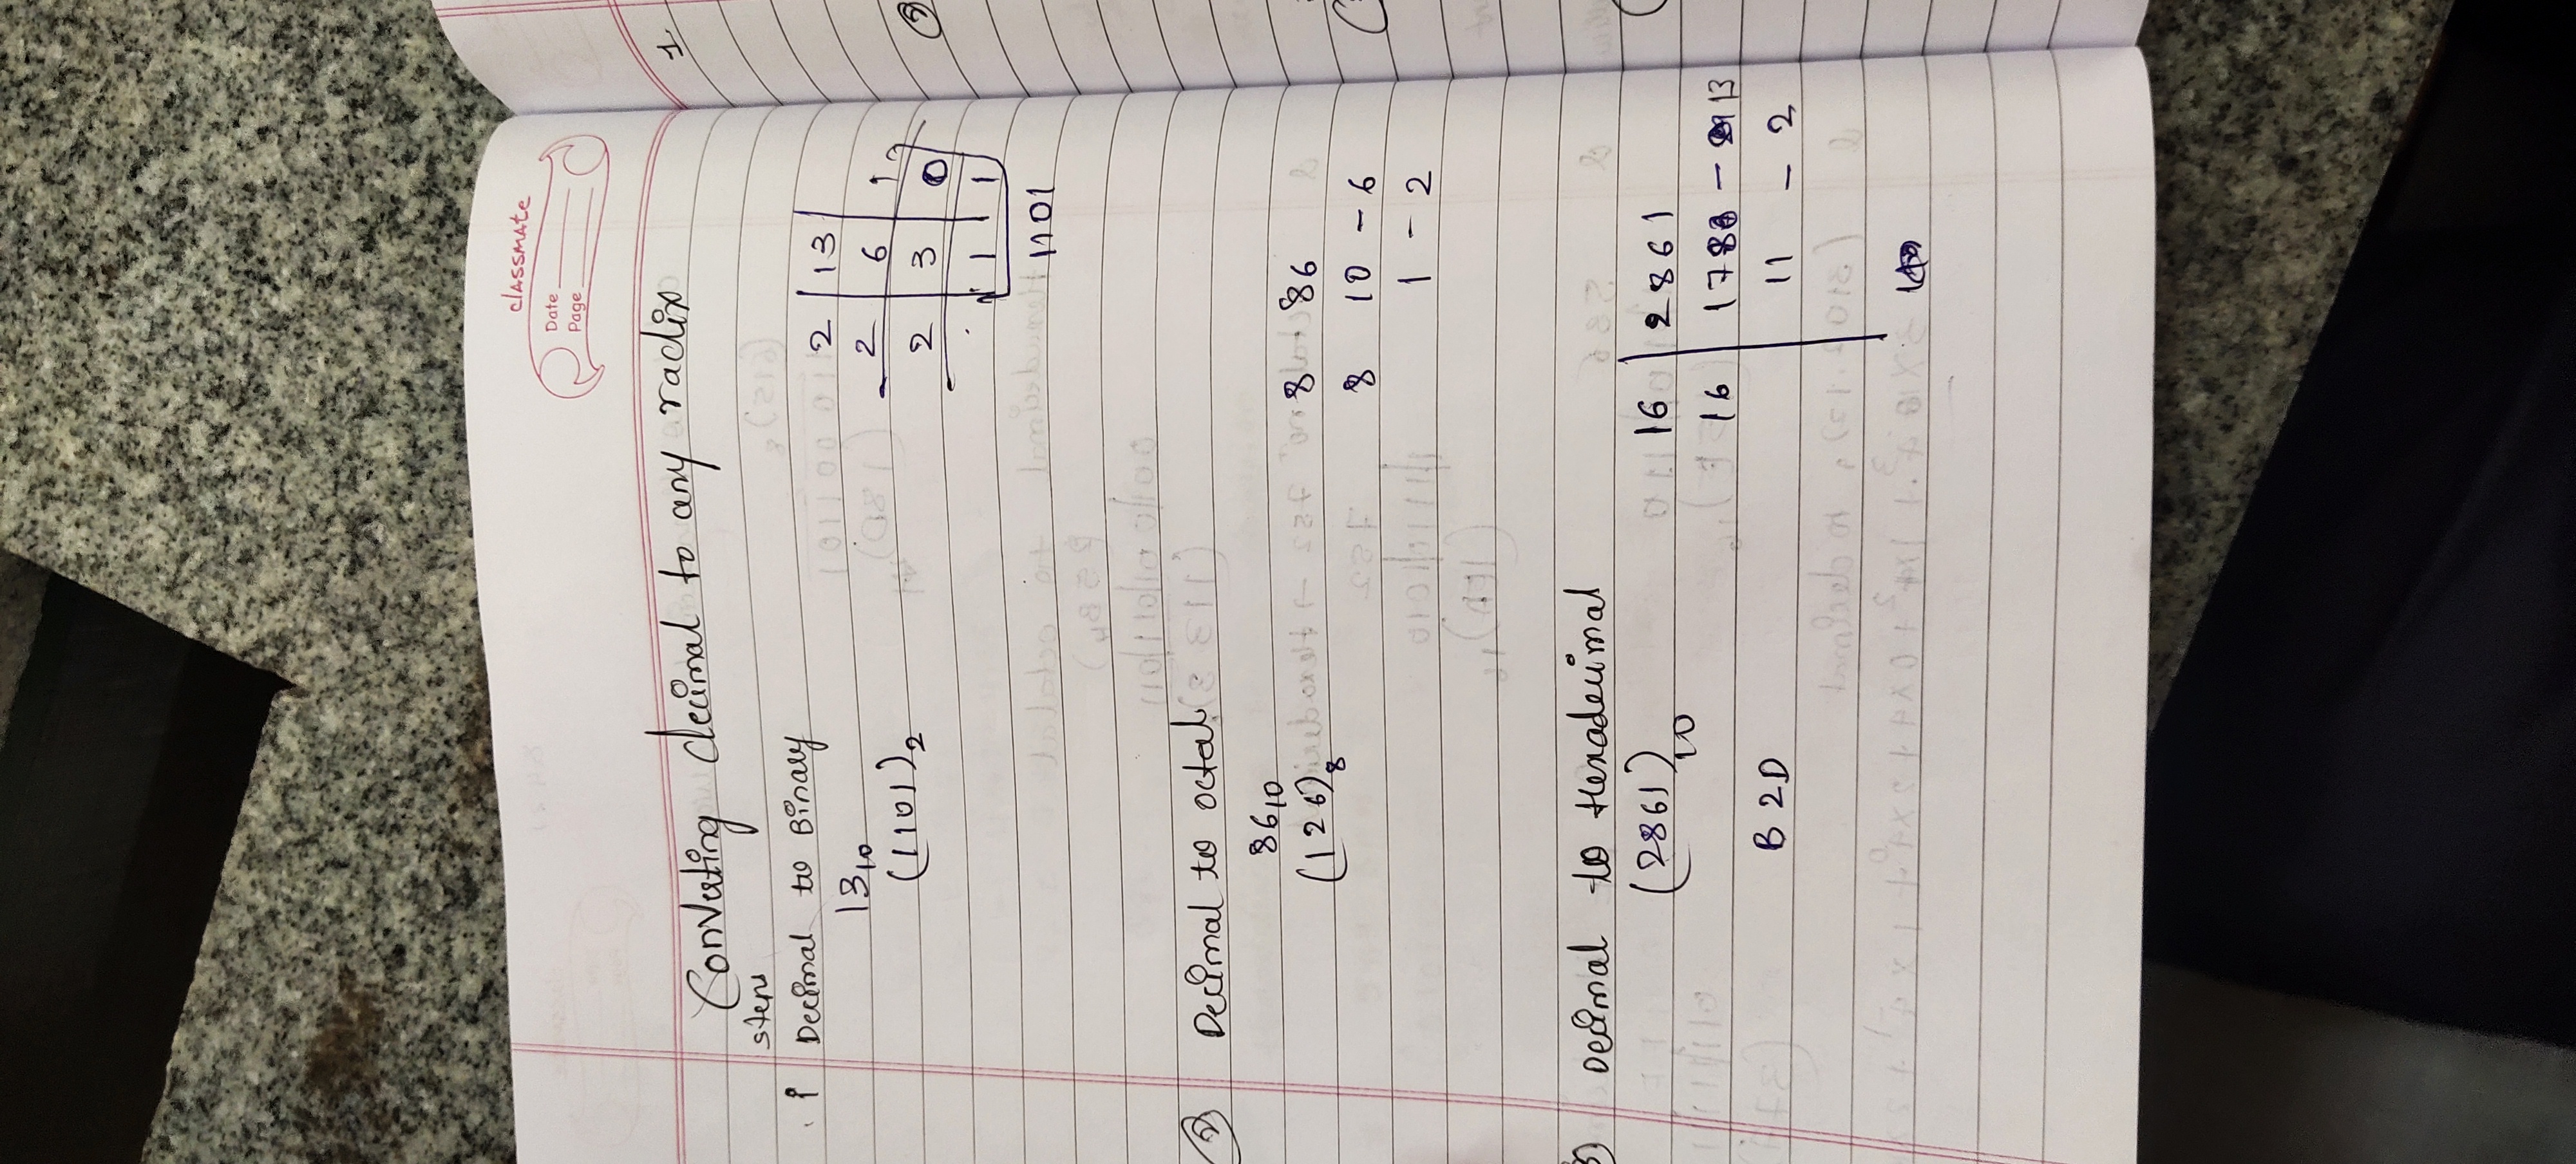 classmate
Date
Page
Converting decimal to any radix
steps
1 Decimal to Binary
13₁₀
(1101)₂
2 | 13
2 | 6 | 1
2 | 3 | 0
1 | 1
1101
② Decimal to octal
86₁₀
(126)₈
8 86
8 10 - 6
1 - 2
Decimal to Hexadecimal
(2861)₁₀
16 | 2861
16 | 178 - 13
B2D
11 - 2
1